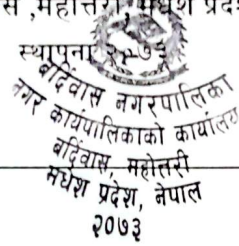 महोत्तरी मधेश प्रदेश
स्थापना
बर्दिवास नगरपालिका
नगर कार्यपालिकाको कार्यालय
बर्दिवास, महोत्तरी
मधेश प्रदेश, नेपाल
२०७३